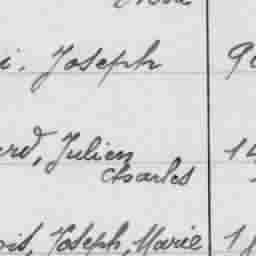 i. Joseph
ard, Julien
Charles
ois, Joseph, Marie